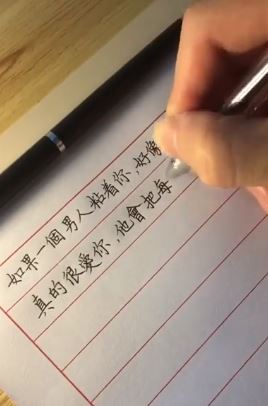 如果一個男人粘着你，好像
真的很愛你，他會把每